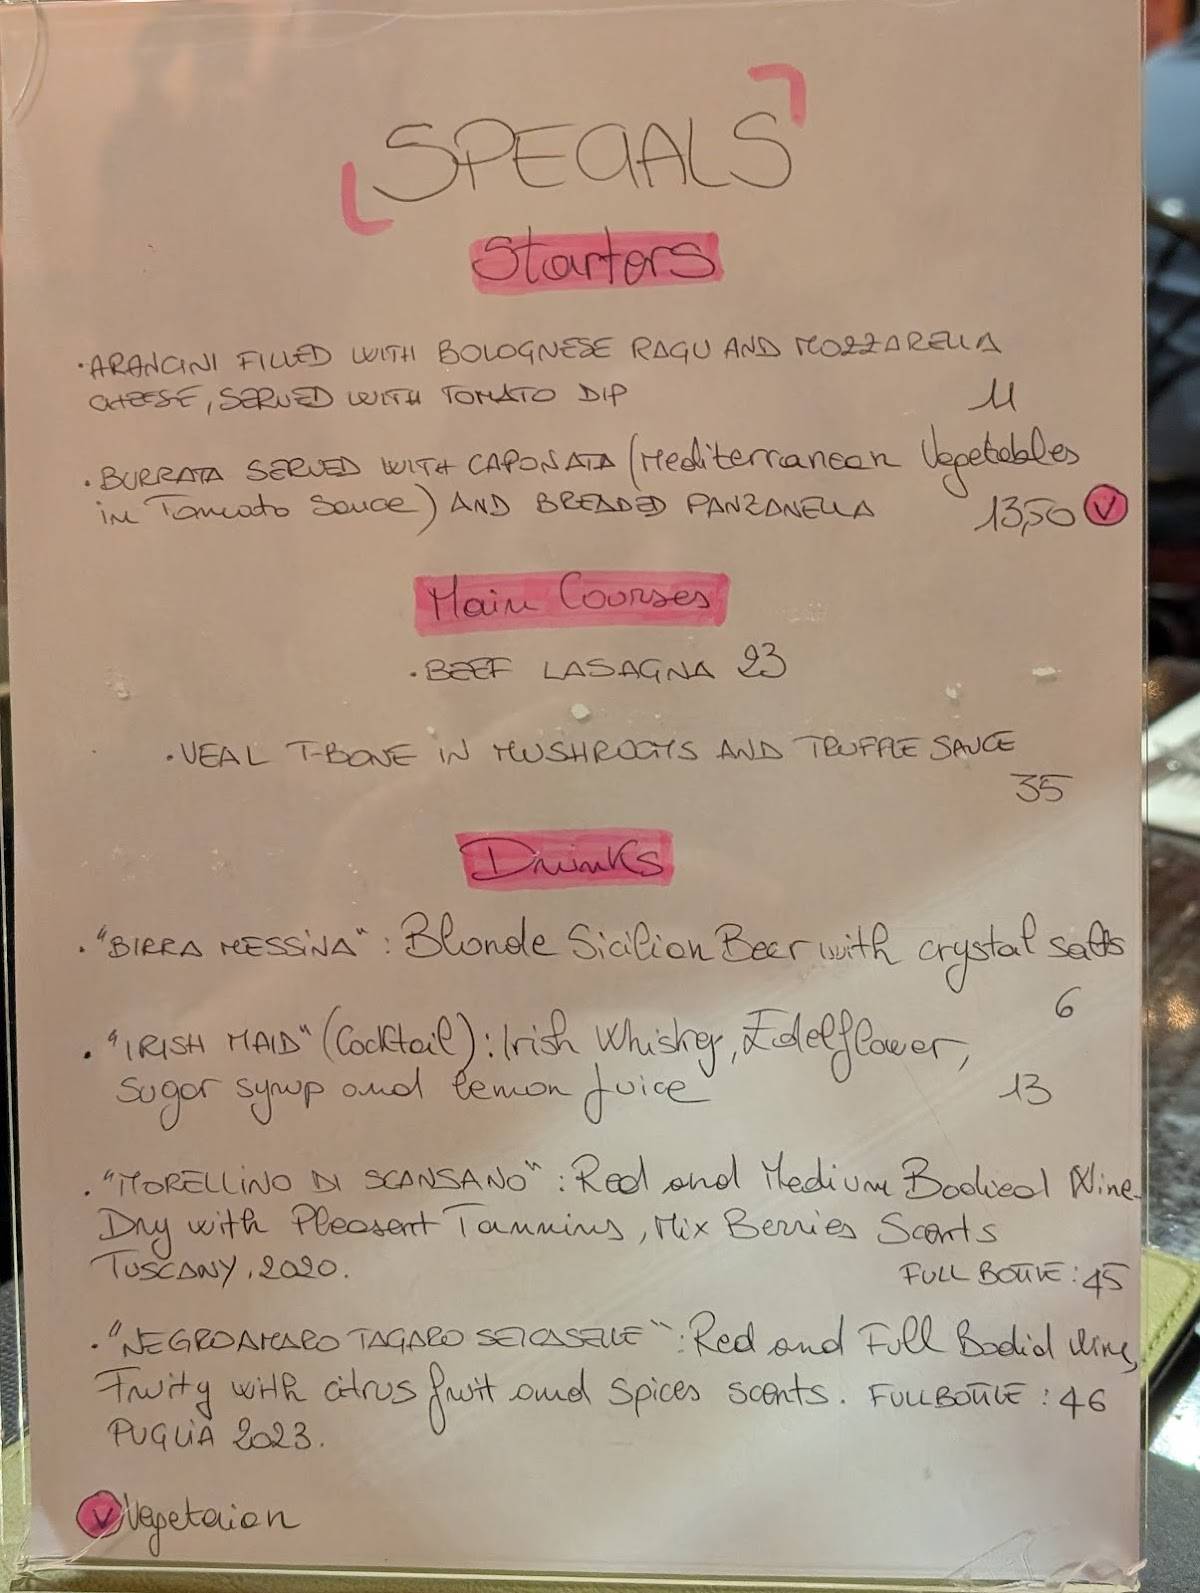 SPECIALS
Starters
·ARANCINI FILLED WITH BOLOGNESE RAGU AND MOZZARELLA
CHEESE, SERVED WITH TOMATO DIP 11
·BURRATA SERVED WITH CAPONATA (Mediterranean Vegetables
in Tomato Sauce) AND BREADED PANZANELLA 13,50 V
Main Courses
·BEEF LASAGNA 23
·VEAL T-BONE IN MUSHROOMS AND TRUFFLE SAUCE
35
Drinks
·"BIRRA MESSINA": Blonde Sicilian Beer with crystal salts
6
·"IRISH MAID" (Cocktail): Irish Whiskey, Edelflower,
Sugar syrup and lemon juice 13
·"MORELLINO DI SCANSANO": Red and Medium Bodied Wine
Dry with Pleasent Tannins, Mix Berries Scents
TUSCANY, 2020. FULL BOTTLE: 45
·"NEGROAMARO TAGARO SEICASELLE": Red and Full Bodid Wine,
Fruity with citrus fruit and Spices scents. FULL BOTTLE: 46
PUGLIA 2023.
V Vegetaian